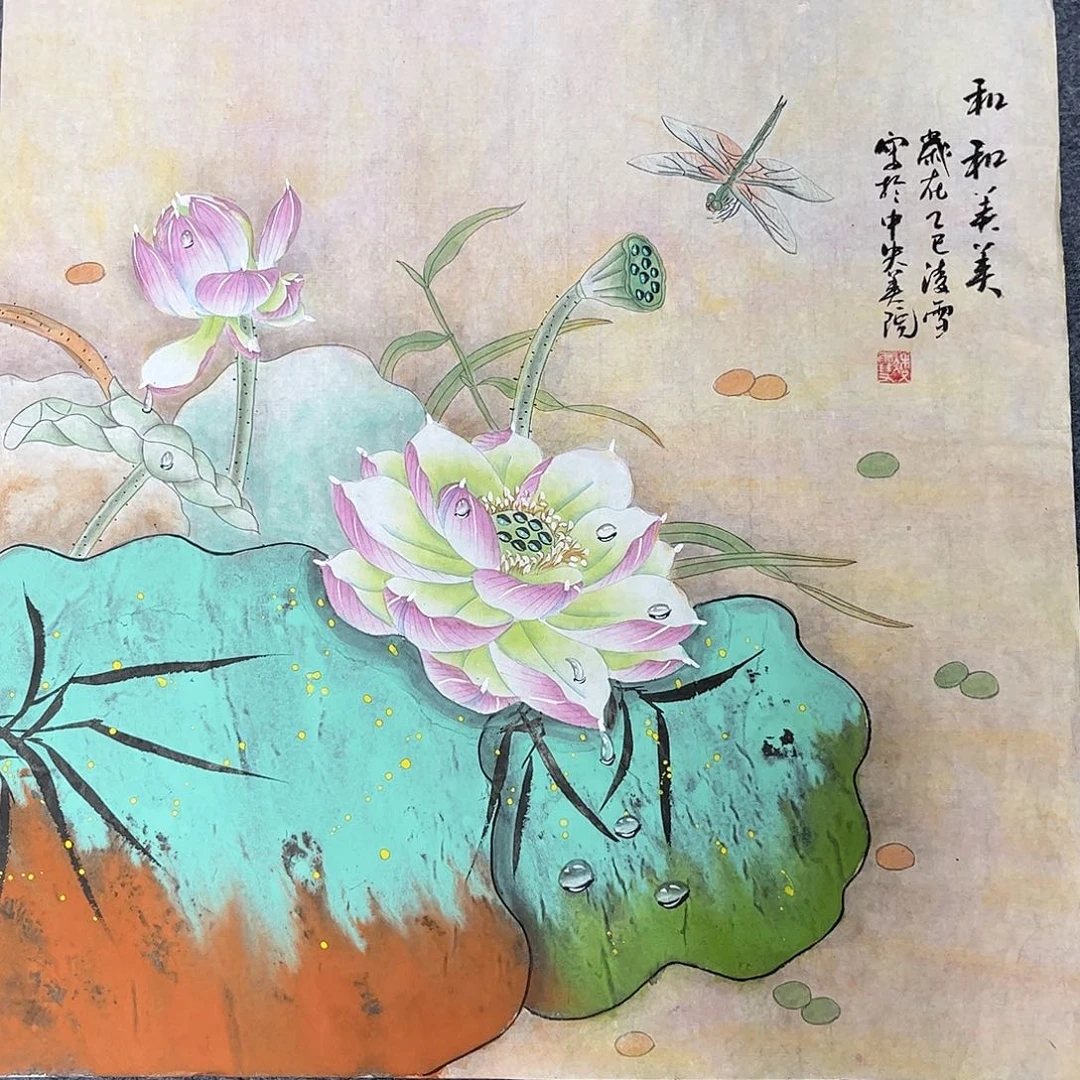 和和美美
歲在乙巳凌雪
字於中央美院